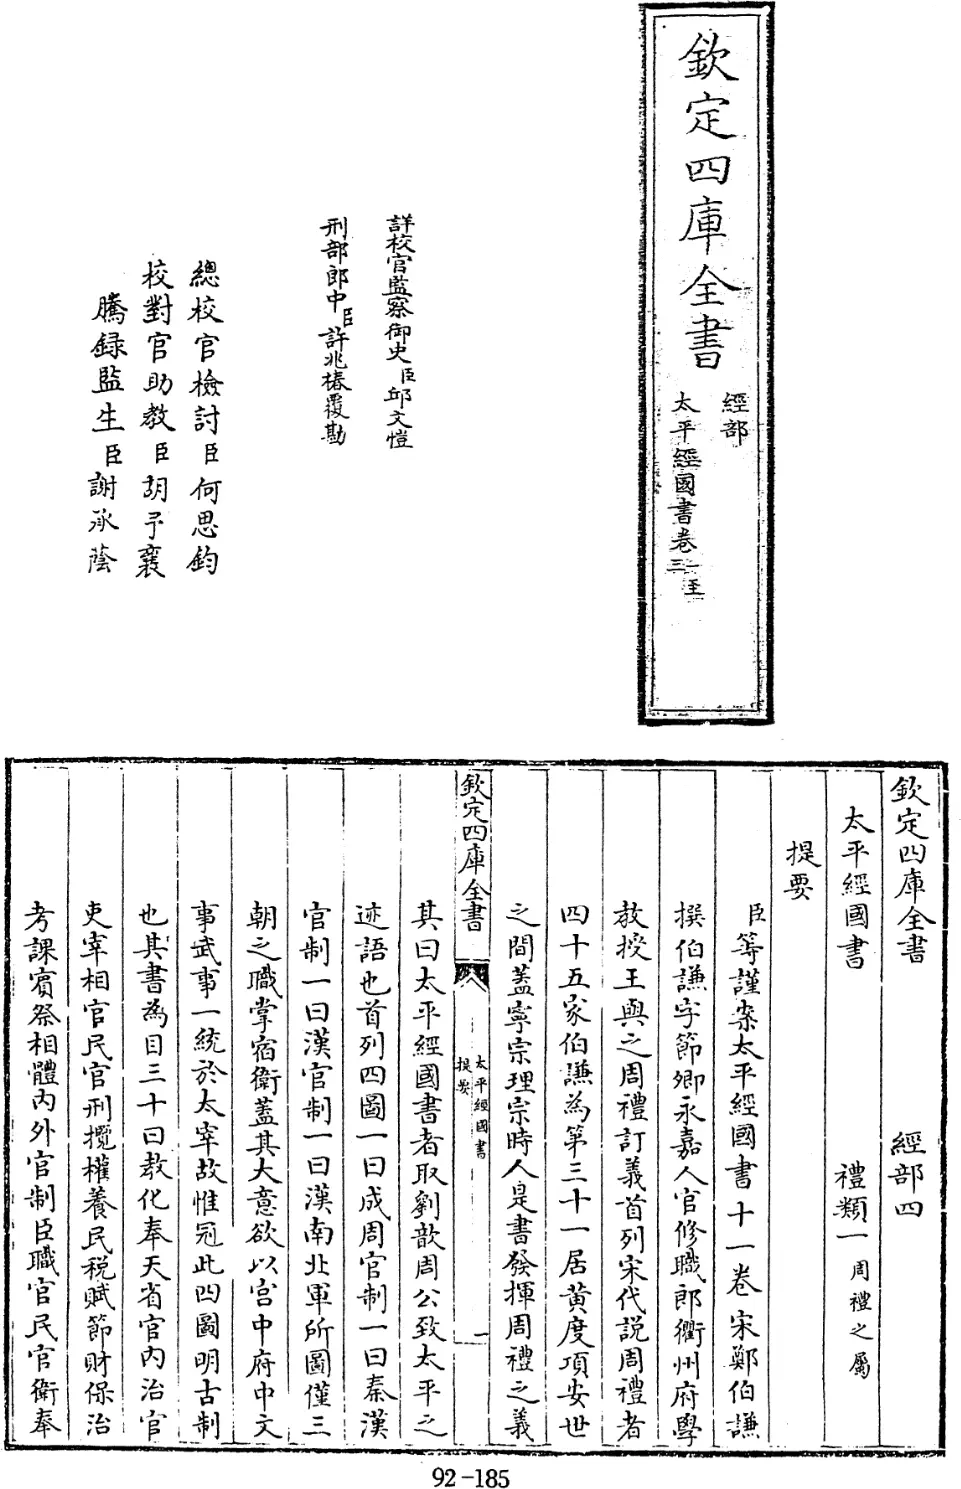 欽定四庫全書
經部
太平經國書卷一至三
詳校官監察御史臣邱文愷
刑部郎中臣許兆椿覆勘
總校官檢討臣何思鈞
校對官助教臣胡予襄
騰錄監生臣謝承蔭
欽定四庫全書 經部四
太平經國書 禮類一周禮之屬
提要
臣等謹案太平經國書十一卷宋鄭伯謙
撰伯謙字節卿永嘉人官修職郎衢州府學
教授王與之周禮訂義首列宋代説周禮者
四十五家伯謙為第三十一居黄度項安世
之間蓋寧宗理宗時人是書發揮周禮之義
欽定四庫全書
太平經國書
提要
一
其曰太平經國書者取劉歆周公致太平之
迹語也首列四圖一曰成周官制一曰秦漢
官制一曰漢官制一曰漢南北軍所圖僅三
朝之職掌宿衛蓋其大意欲以宫中府中文
事武事一統於太宰故惟冠此四圖明古制
也其書為目三十曰教化奉天省官内治官
吏宰相官民官刑攬權養民税賦節財保治
考課賓祭相體内外官制臣職官民官衛奉
92-185